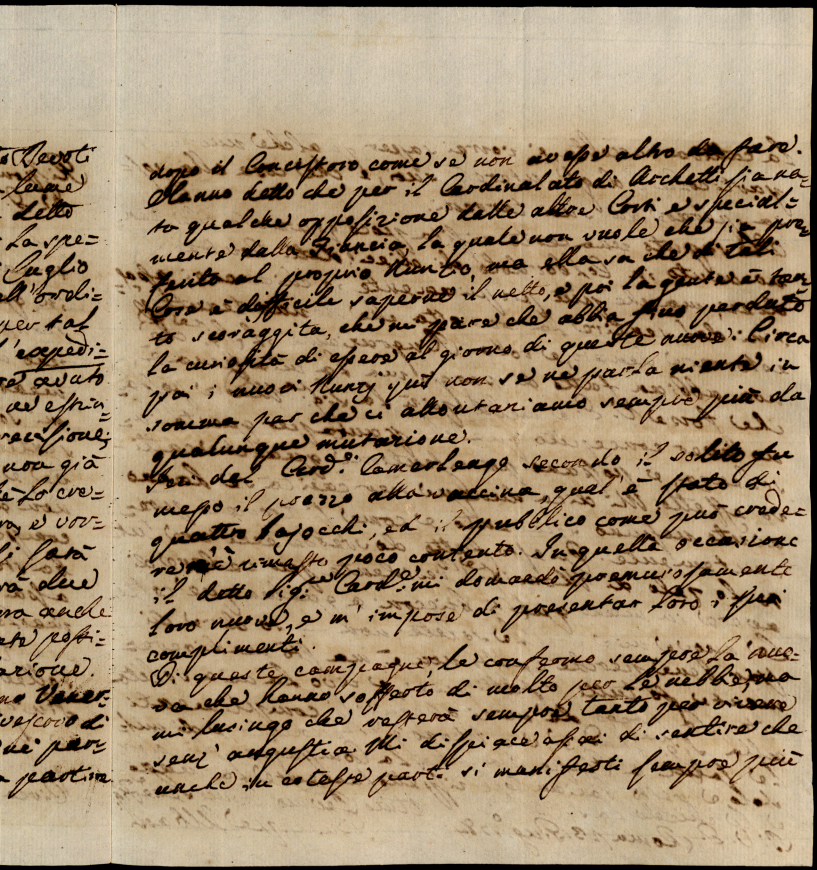 to Devoti
lume
detto
La spe=
Luglio
all'ordi=
per tal
l'expedi=
avuto
ne estrin
non già
Lo cre=
e vor=
farà
due
anche
posti=
azione.
Vener.
vescovo di
par=
partim
dopo il Concistoro come se non avesse altro da fare.
Hanno detto che per il Cardinalato di Archetti sia na=
ta qualche opposizione dalle altre Corti e special=
mente dalla Francia, la quale non vuole che sia pre=
ferito al proprio Nuntio, ma ella sa che di tali
Cose è difficile saperne il netto, e poi la gente è tan=
to scoraggita, che mi pare che abbia fino perduto
la curiosità di essere al giorno di queste nuove. Circa
poi i nuovi Nunzj quì non se ne parla niente in
somma par che ci allontaniamo sempre più da
qualunque mutazione.
Jeri dal Card.e Camerlengo secondo il solito fu
messo il prezzo alla vaccina, qual' è stato di
quattro bajocchi, ed il pubblico come può crede=
re n'è rimasto poco contento. In quella occasione
il detto Sig.r Card.e mi domandò premurosamente
loro nuove, e m' impose di presentar loro i suoi
complimenti.
Di queste campagne, le confermo sempre la nuo=
va che hanno sofferto di molto per le nebbie, ma
mi lusingo che resterà sempre tanto per vivere
senz' angustia. Mi dispiace assai di sentire che
anche in coteste parti si manifesti sempre più